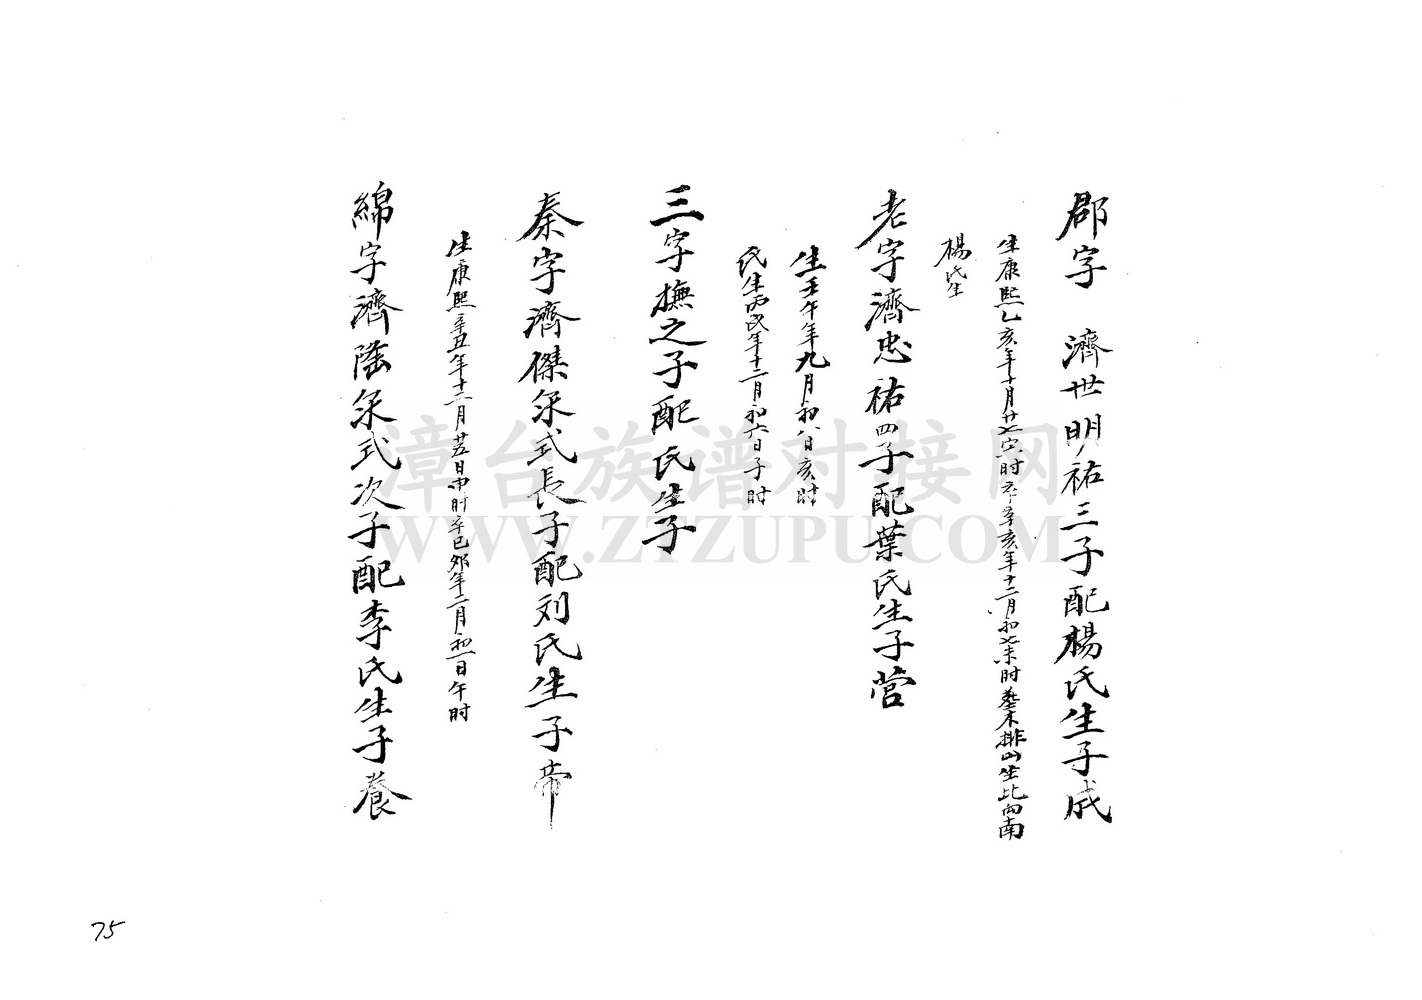 郡字 濟世明祐三子配楊氏生子成
生康熙乙亥年十月廿七寅时卒辛亥年十二月初七未时葬木排山坐北向南
楊氏生
老字濟忠祐四子配葉氏生子営
生壬午年九月初八日亥时
氏生丙戌年十二月初六日子时
三字撫之子配氏生子
秦字濟傑釆式長子配刘氏生子带
生康熙辛丑年十二月廿五日申时卒已夘年二月初一日午时
綿字濟隆釆式次子配李氏生子養
漳台族谱对接网
WWW.ZTZUPU.COM
75